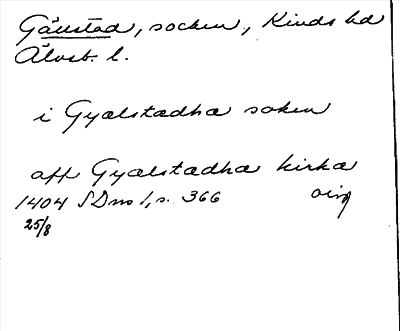 Gällstad, socken, Kinds hd
Älvsb. l.
i Gyælstadha soken
aff Gyælstadha kirkæ
1404 SDns 1, s. 366 orig
25/8